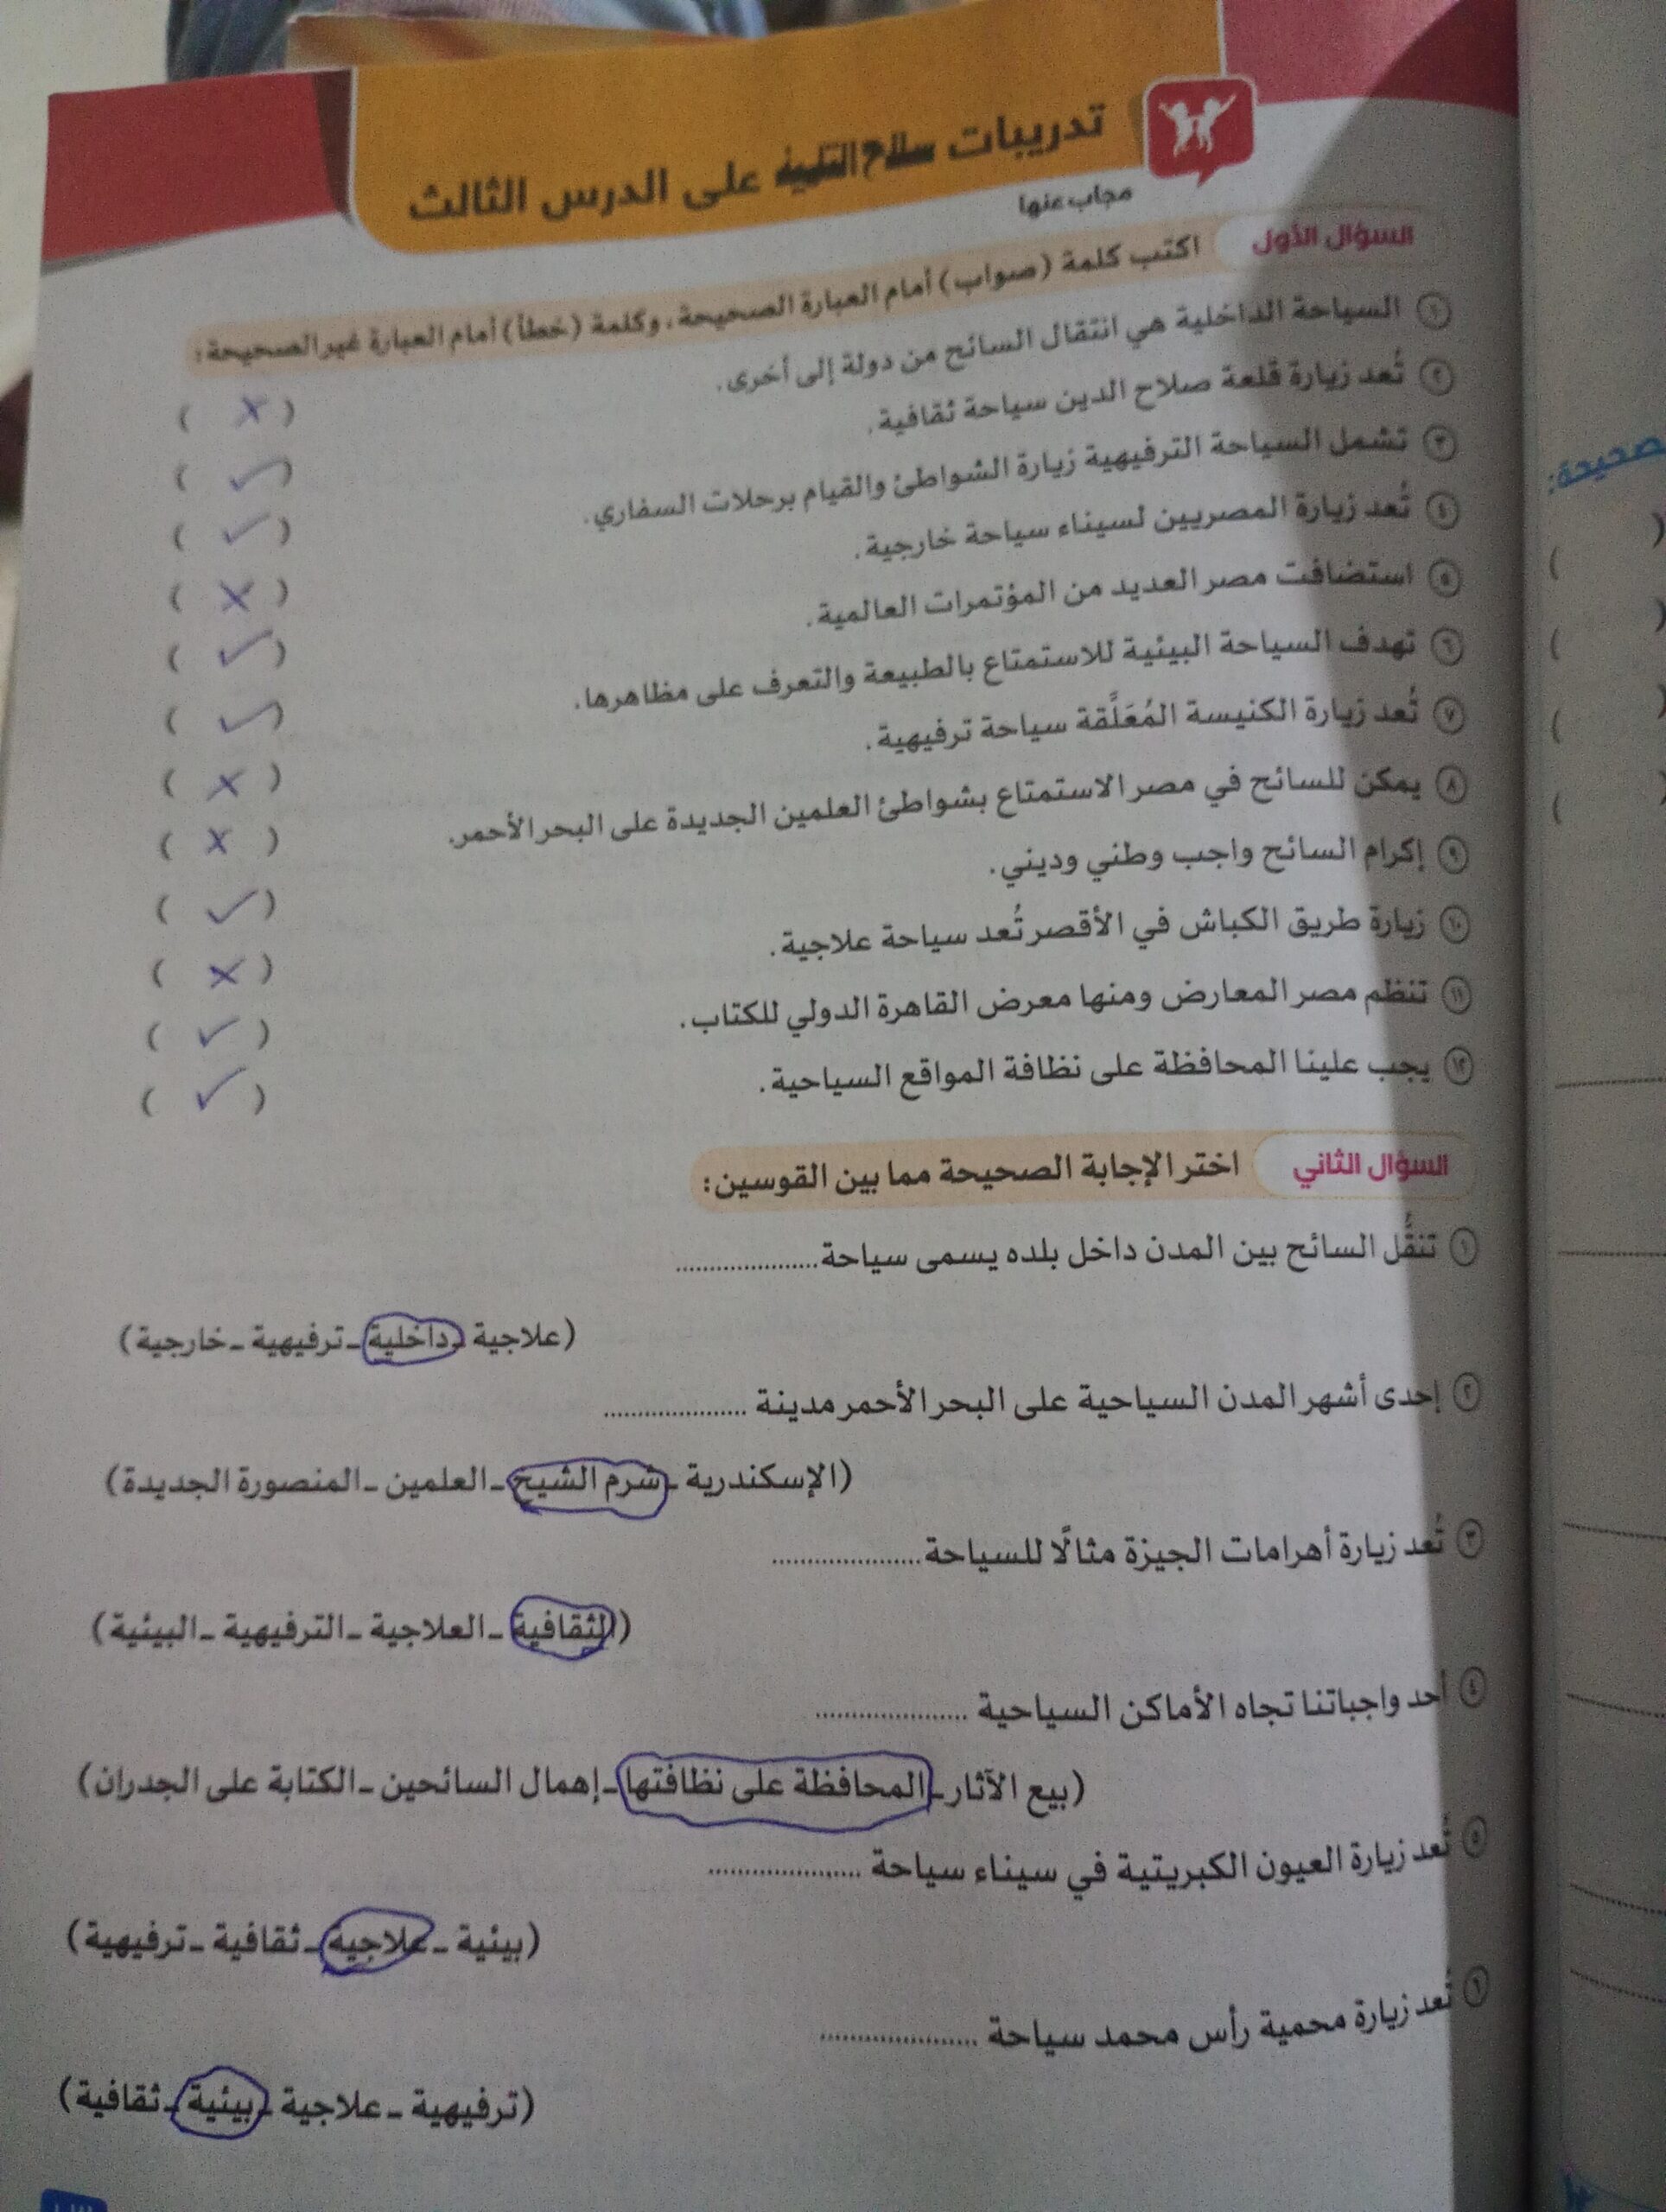 تدريبات سلاح التلميذ على الدرس الثالث
مجاب عنها
السؤال الأول اكتب كلمة (صواب) أمام العبارة الصحيحة، وكلمة (خطأ) أمام العبارة غير الصحيحة:
١ السياحة الداخلية هي انتقال السائح من دولة إلى أخرى. ( × )
٢ تُعد زيارة قلعة صلاح الدين سياحة ثقافية. ( ✓ )
٣ تشمل السياحة الترفيهية زيارة الشواطئ والقيام برحلات السفاري. ( ✓ )
٤ تُعد زيارة المصريين لسيناء سياحة خارجية. ( × )
٥ استضافت مصر العديد من المؤتمرات العالمية. ( ✓ )
٦ تهدف السياحة البيئية للاستمتاع بالطبيعة والتعرف على مظاهرها. ( ✓ )
٧ تُعد زيارة الكنيسة المُعَلَّقة سياحة ترفيهية. ( × )
٨ يمكن للسائح في مصر الاستمتاع بشواطئ العلمين الجديدة على البحر الأحمر. ( × )
٩ إكرام السائح واجب وطني وديني. ( ✓ )
١٠ زيارة طريق الكباش في الأقصر تُعد سياحة علاجية. ( × )
١١ تنظم مصر المعارض ومنها معرض القاهرة الدولي للكتاب. ( ✓ )
١٢ يجب علينا المحافظة على نظافة المواقع السياحية. ( ✓ )
السؤال الثاني اختر الإجابة الصحيحة مما بين القوسين:
١ تنقُّل السائح بين المدن داخل بلده يسمى سياحة .....................
(علاجية - داخلية - ترفيهية - خارجية)
٢ إحدى أشهر المدن السياحية على البحر الأحمر مدينة .....................
(الإسكندرية - شرم الشيخ - العلمين - المنصورة الجديدة)
٣ تُعد زيارة أهرامات الجيزة مثالًا للسياحة .....................
(الثقافية - العلاجية - الترفيهية - البيئية)
٤ أحد واجباتنا تجاه الأماكن السياحية .....................
(بيع الآثار - المحافظة على نظافتها - إهمال السائحين - الكتابة على الجدران)
٥ تُعد زيارة العيون الكبريتية في سيناء سياحة .....................
(بيئية - علاجية - ثقافية - ترفيهية)
٦ تُعد زيارة محمية رأس محمد سياحة .....................
(ترفيهية - علاجية - بيئية - ثقافية)